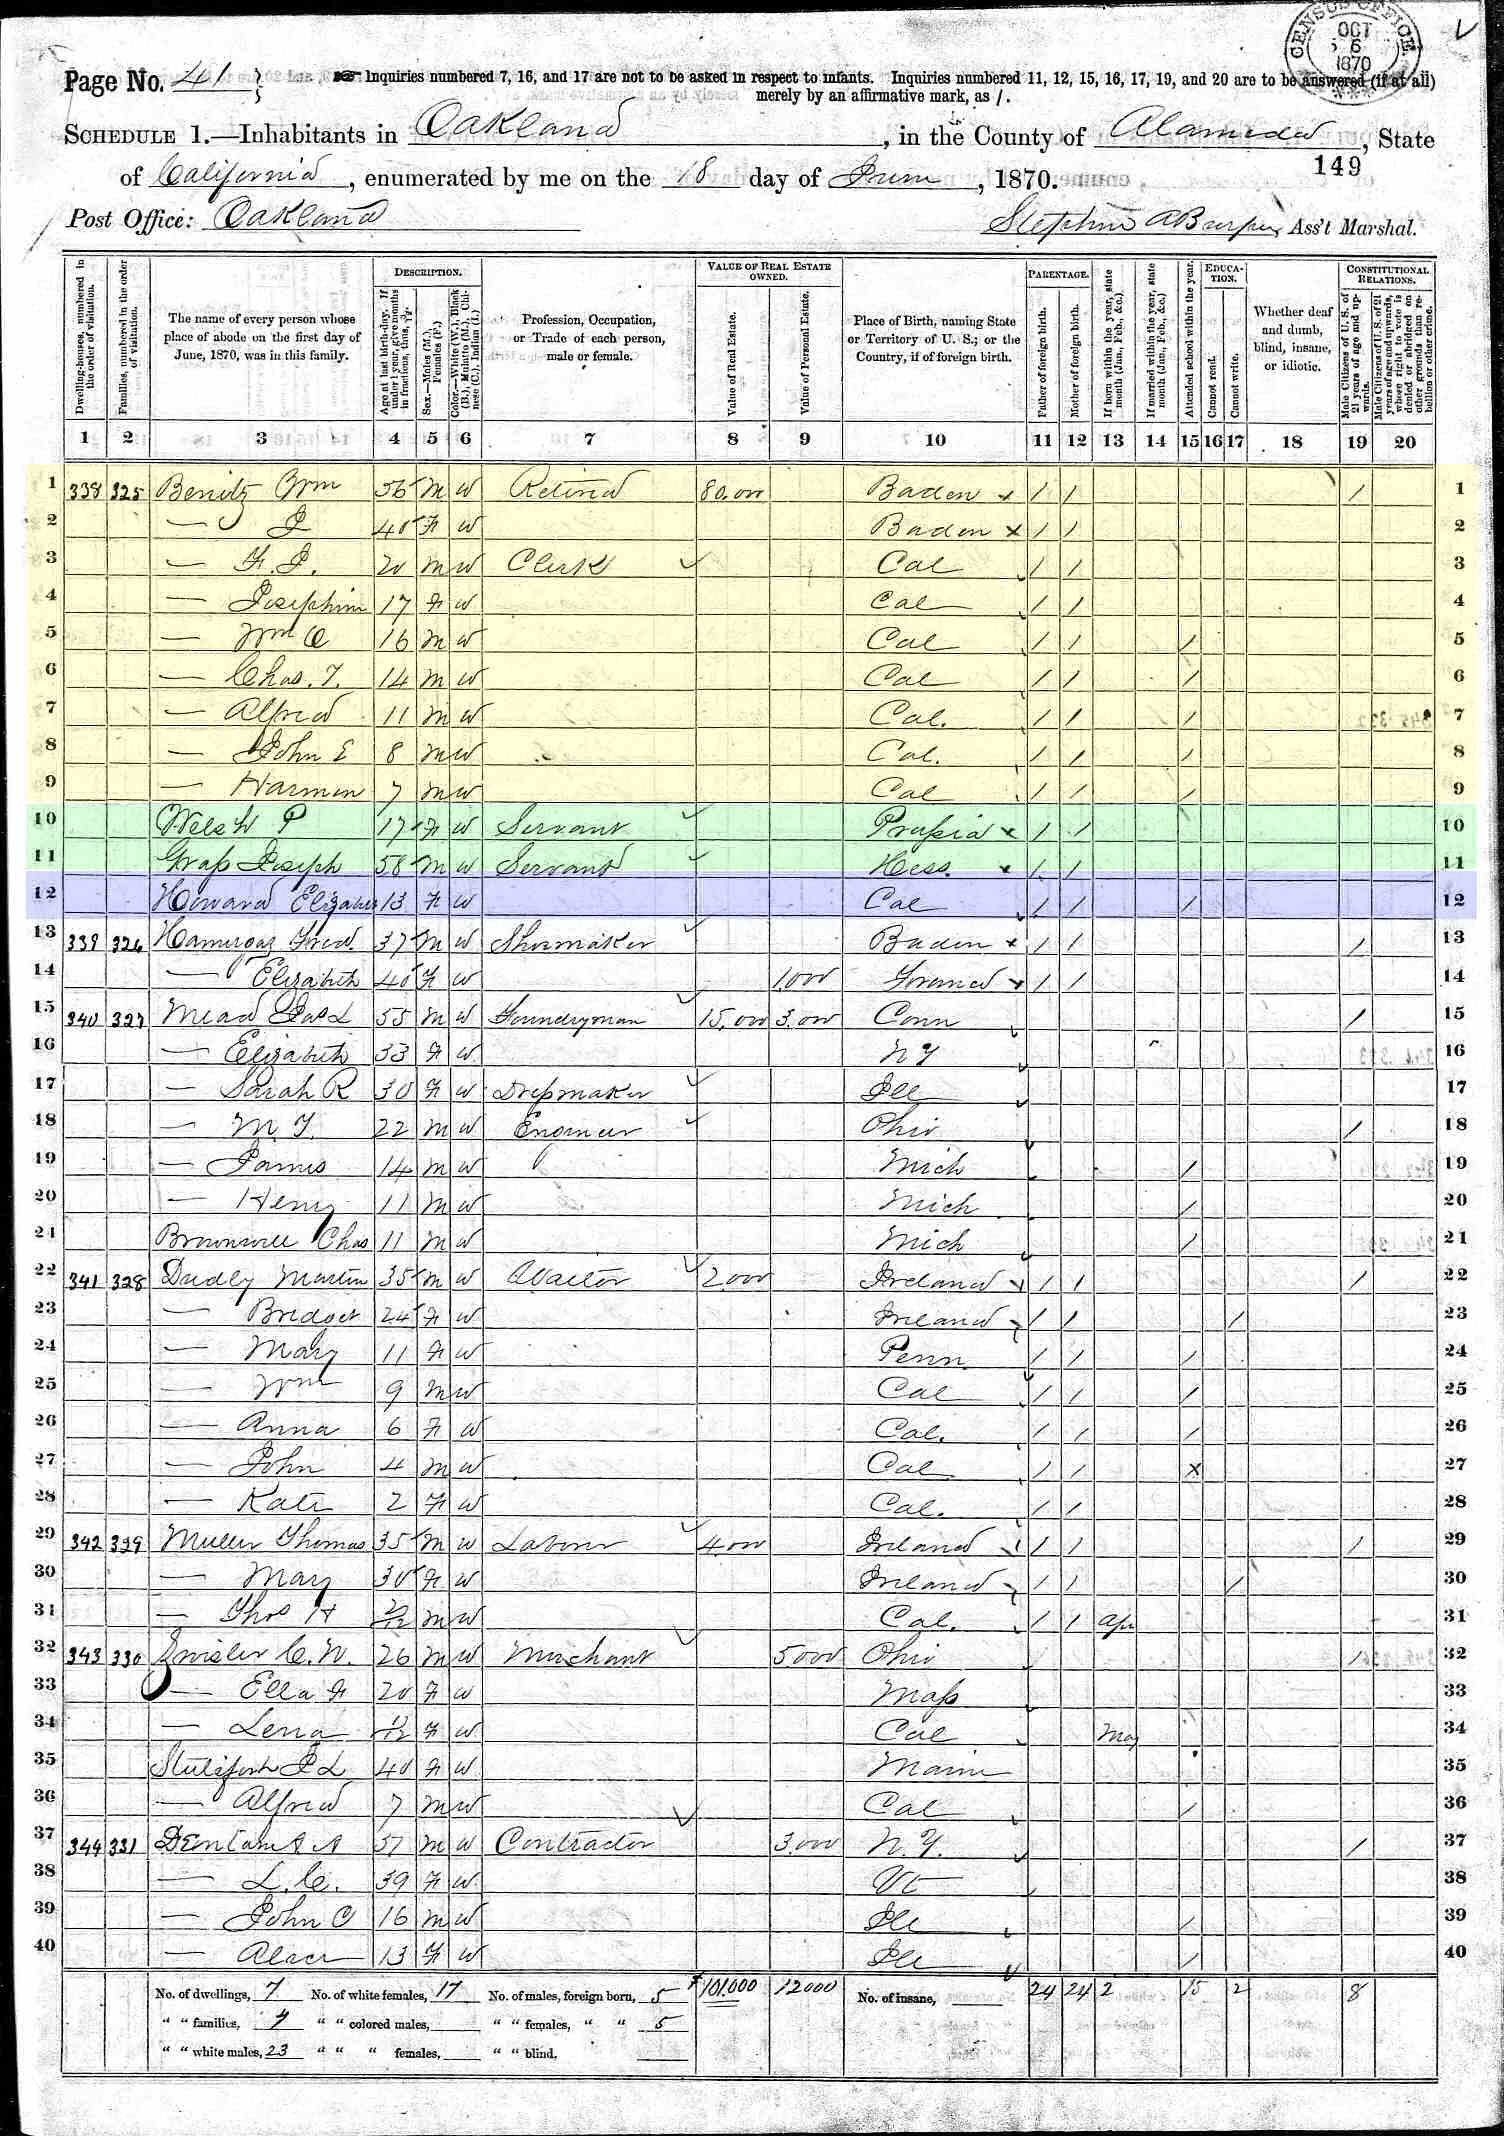 CENSUS OFFICE
OCT
6
1870
Page No. 41
Inquiries numbered 7, 16, and 17 are not to be asked in respect to infants. Inquiries numbered 11, 12, 15, 16, 17, 19, and 20 are to be answered (if at all)
merely by an affirmative mark, as /.
SCHEDULE 1.—Inhabitants in Oakland, in the County of Alameda, State
149
of California, enumerated by me on the 18 day of June, 1870.
Post Office: Oakland Ass't Marshal.
Dwelling-houses, numbered in the order of visitation.
Families, numbered in the order of visitation.
The name of every person whose place of abode on the first day of June, 1870, was in this family.
DESCRIPTION.
Age at last birth-day. If under 1 year, give months in fractions, thus, 3/12.
Sex.—Males (M.), Females (F.)
Color.—White (W.), Black (B.), Mulatto (M.), Chinese (C.), Indian (I.)
Profession, Occupation, or Trade of each person, male or female.
VALUE OF REAL ESTATE OWNED.
Value of Real Estate.
Value of Personal Estate.
Place of Birth, naming State or Territory of U. S.; or the Country, if of foreign birth.
PARENTAGE.
Father of foreign birth.
Mother of foreign birth.
If born within the year, state month (Jan., Feb., &c.)
If married within the year, state month (Jan., Feb., &c.)
EDUCATION.
Attended school within the year.
Cannot read.
Cannot write.
Whether deaf and dumb, blind, insane, or idiotic.
CONSTITUTIONAL RELATIONS.
Male Citizens of U. S. of 21 years of age and upwards.
Male Citizens of U. S. of 21 years of age and upwards, whose right to vote is denied or abridged on other grounds than rebellion or other crime.
1 2 3 4 5 6 7 8 9 10 11 12 13 14 15 16 17 18 19 20
1 338 325 Benitz Wm 56 M W Retired 80,000 Baden / / / 1
2 — J 40 F W Baden / / 2
3 — F. J. 20 M W Clerk Cal / / 3
4 — Josephine 17 F W Cal / / 4
5 — Wm O 16 M W Cal / / / 5
6 — Chas. T. 14 M W Cal / / / 6
7 — Alfred 11 M W Cal. / / / 7
8 — John E 8 M W Cal. / / / 8
9 — Harman 7 M W Cal / / / 9
10 Welsh P 17 F W Servant Prussia / / 10
11 Grass Joseph 58 M W Servant Hess. / / 11
12 Howard Elizabeth 13 F W Cal / / / 12
13 339 326 Fred. 37 M W Shoemaker Baden / / / 13
14 — Elizabeth 40 F W 1,000 / / 14
15 340 327 Mead Jas L 55 M W Foundryman 15,000 3,000 Conn / 15
16 — Elizabeth 33 F W N Y 16
17 — Sarah R 30 F W Dressmaker Ill 17
18 — M. T. 22 M W Engineer Ohio / 18
19 — James 14 M W Mich / 19
20 — Henry 11 M W Mich / 20
21 Chas 11 M W Mich / 21
22 341 328 Dudly Martin 35 M W Waiter 2,000 Ireland / / / 22
23 — Bridget 24 F W Ireland / / / 23
24 — Mary 11 F W Penn. / / / 24
25 — Wm 9 M W Cal / / / 25
26 — Anna 6 F W Cal. / / / 26
27 — John 4 M W Cal / / x 27
28 — Kate 2 F W Cal. / / 28
29 342 329 Thomas 35 M W Laborer 400 Ireland / / / 29
30 — Mary 30 F W Ireland / / / 30
31 — Thos H 2/12 M W Cal. / / Apr 31
32 343 330 C. W. 26 M W Merchant 5000 Ohio / 32
33 — Ella F 20 F W Mass 33
34 — Lena 1/12 F W Cal May 34
35 J L 40 F W Maine 35
36 — Alfred 7 M W Cal / 36
37 344 331 A 57 M W Contractor 3,000 N. Y. / 37
38 — L. C. 39 F W Vt 38
39 — John C 16 M W Ill / 39
40 — 13 F W Ill / 40
No. of dwellings, 7 No. of white females, 17 No. of males, foreign born, 5 $101,000 12000 No. of insane, 24 24 2 15 2 8
" " families, 7 " " colored males, " " females, " " 5
" " white males, 23 " " " females, " " blind,